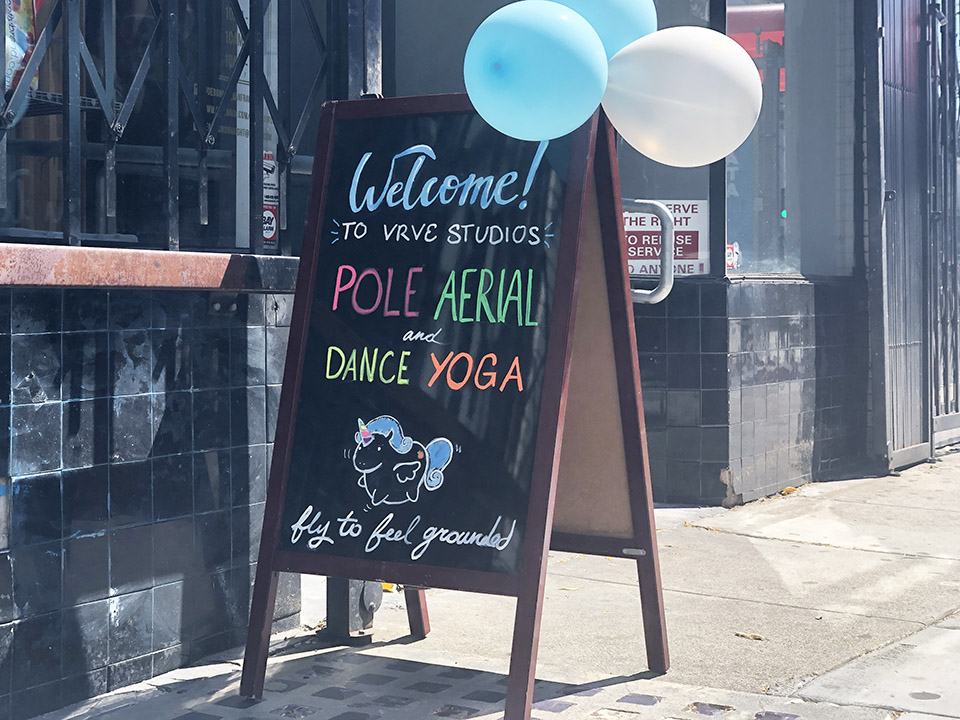 Welcome!
TO VRVE STUDIOS
POLE AERIAL
and
DANCE YOGA
fly to feel grounded
SERVE
THE RIGHT
TO REFUSE
SERVICE
TO ANYONE